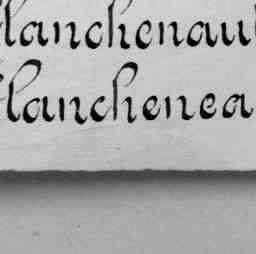 lanchenau
lanchenea